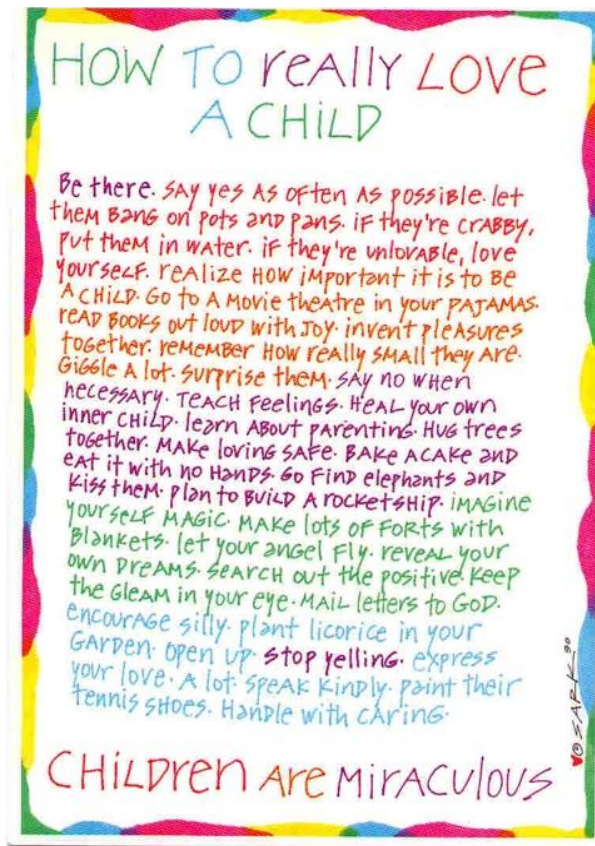 HOW TO reALLY LOVE
A CHiLD
Be there. SAY yes AS OFten AS possible. let
them BANG on pots and pans. iF they're crABBY,
put them in WAter. iF they're unlovABle, love
yourseLF. reALize HOW important it is to Be
A CHiLD. GO to A Movie theatre in your PAJAMAS.
reAD BOOKS out louD with Joy. invent pleAsures
together. reMeMber How reAlly SMAll they Are.
GiGGle A lot. Surprise them. SAY no WHen
necessAry. TEACH FeelinGS. HeAL your own
inner CHiLD. leArn ABout pArentinG. HuG trees
toGether. MAKe lovinG SAFe. BAKe A CAKe AnD
eAt it with no HAnDS. GO FinD elephAnts AnD
Kiss them. plAn to BuiLD A rocKetSHip. iMAGine
yourseLF MAGic. MAKe lots OF Forts with
BlAnKets. let your AnGel Fly. reveAL your
own DreAMS. SeArcH out the positive. Keep
the GleAM in your eye. MAiL letters to GoD.
encourAGe silly. plAnt licorice in your
GArDen. open up. stop yellinG. express
your love. A lot. SpeAK KinDly. pAint their
tennis SHoes. HAnDle with CArinG.
CHiLDren Are MirACulous
© SARK 90